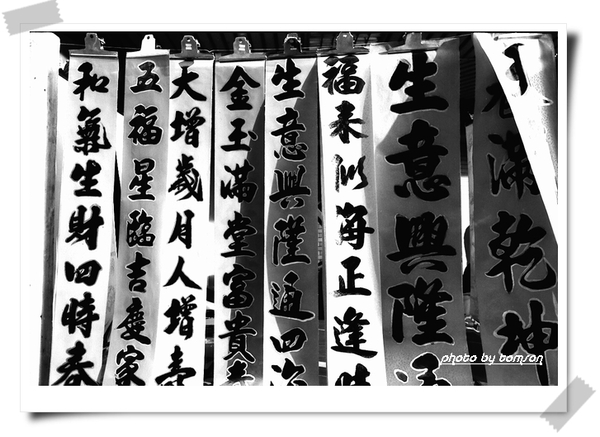 滿乾坤
生意興隆通
福来似海正逢時
生意興隆通四海
金玉滿堂富貴
天增歲月人增壽
五福星臨吉慶家
和氣生財四時春
photo by tomson